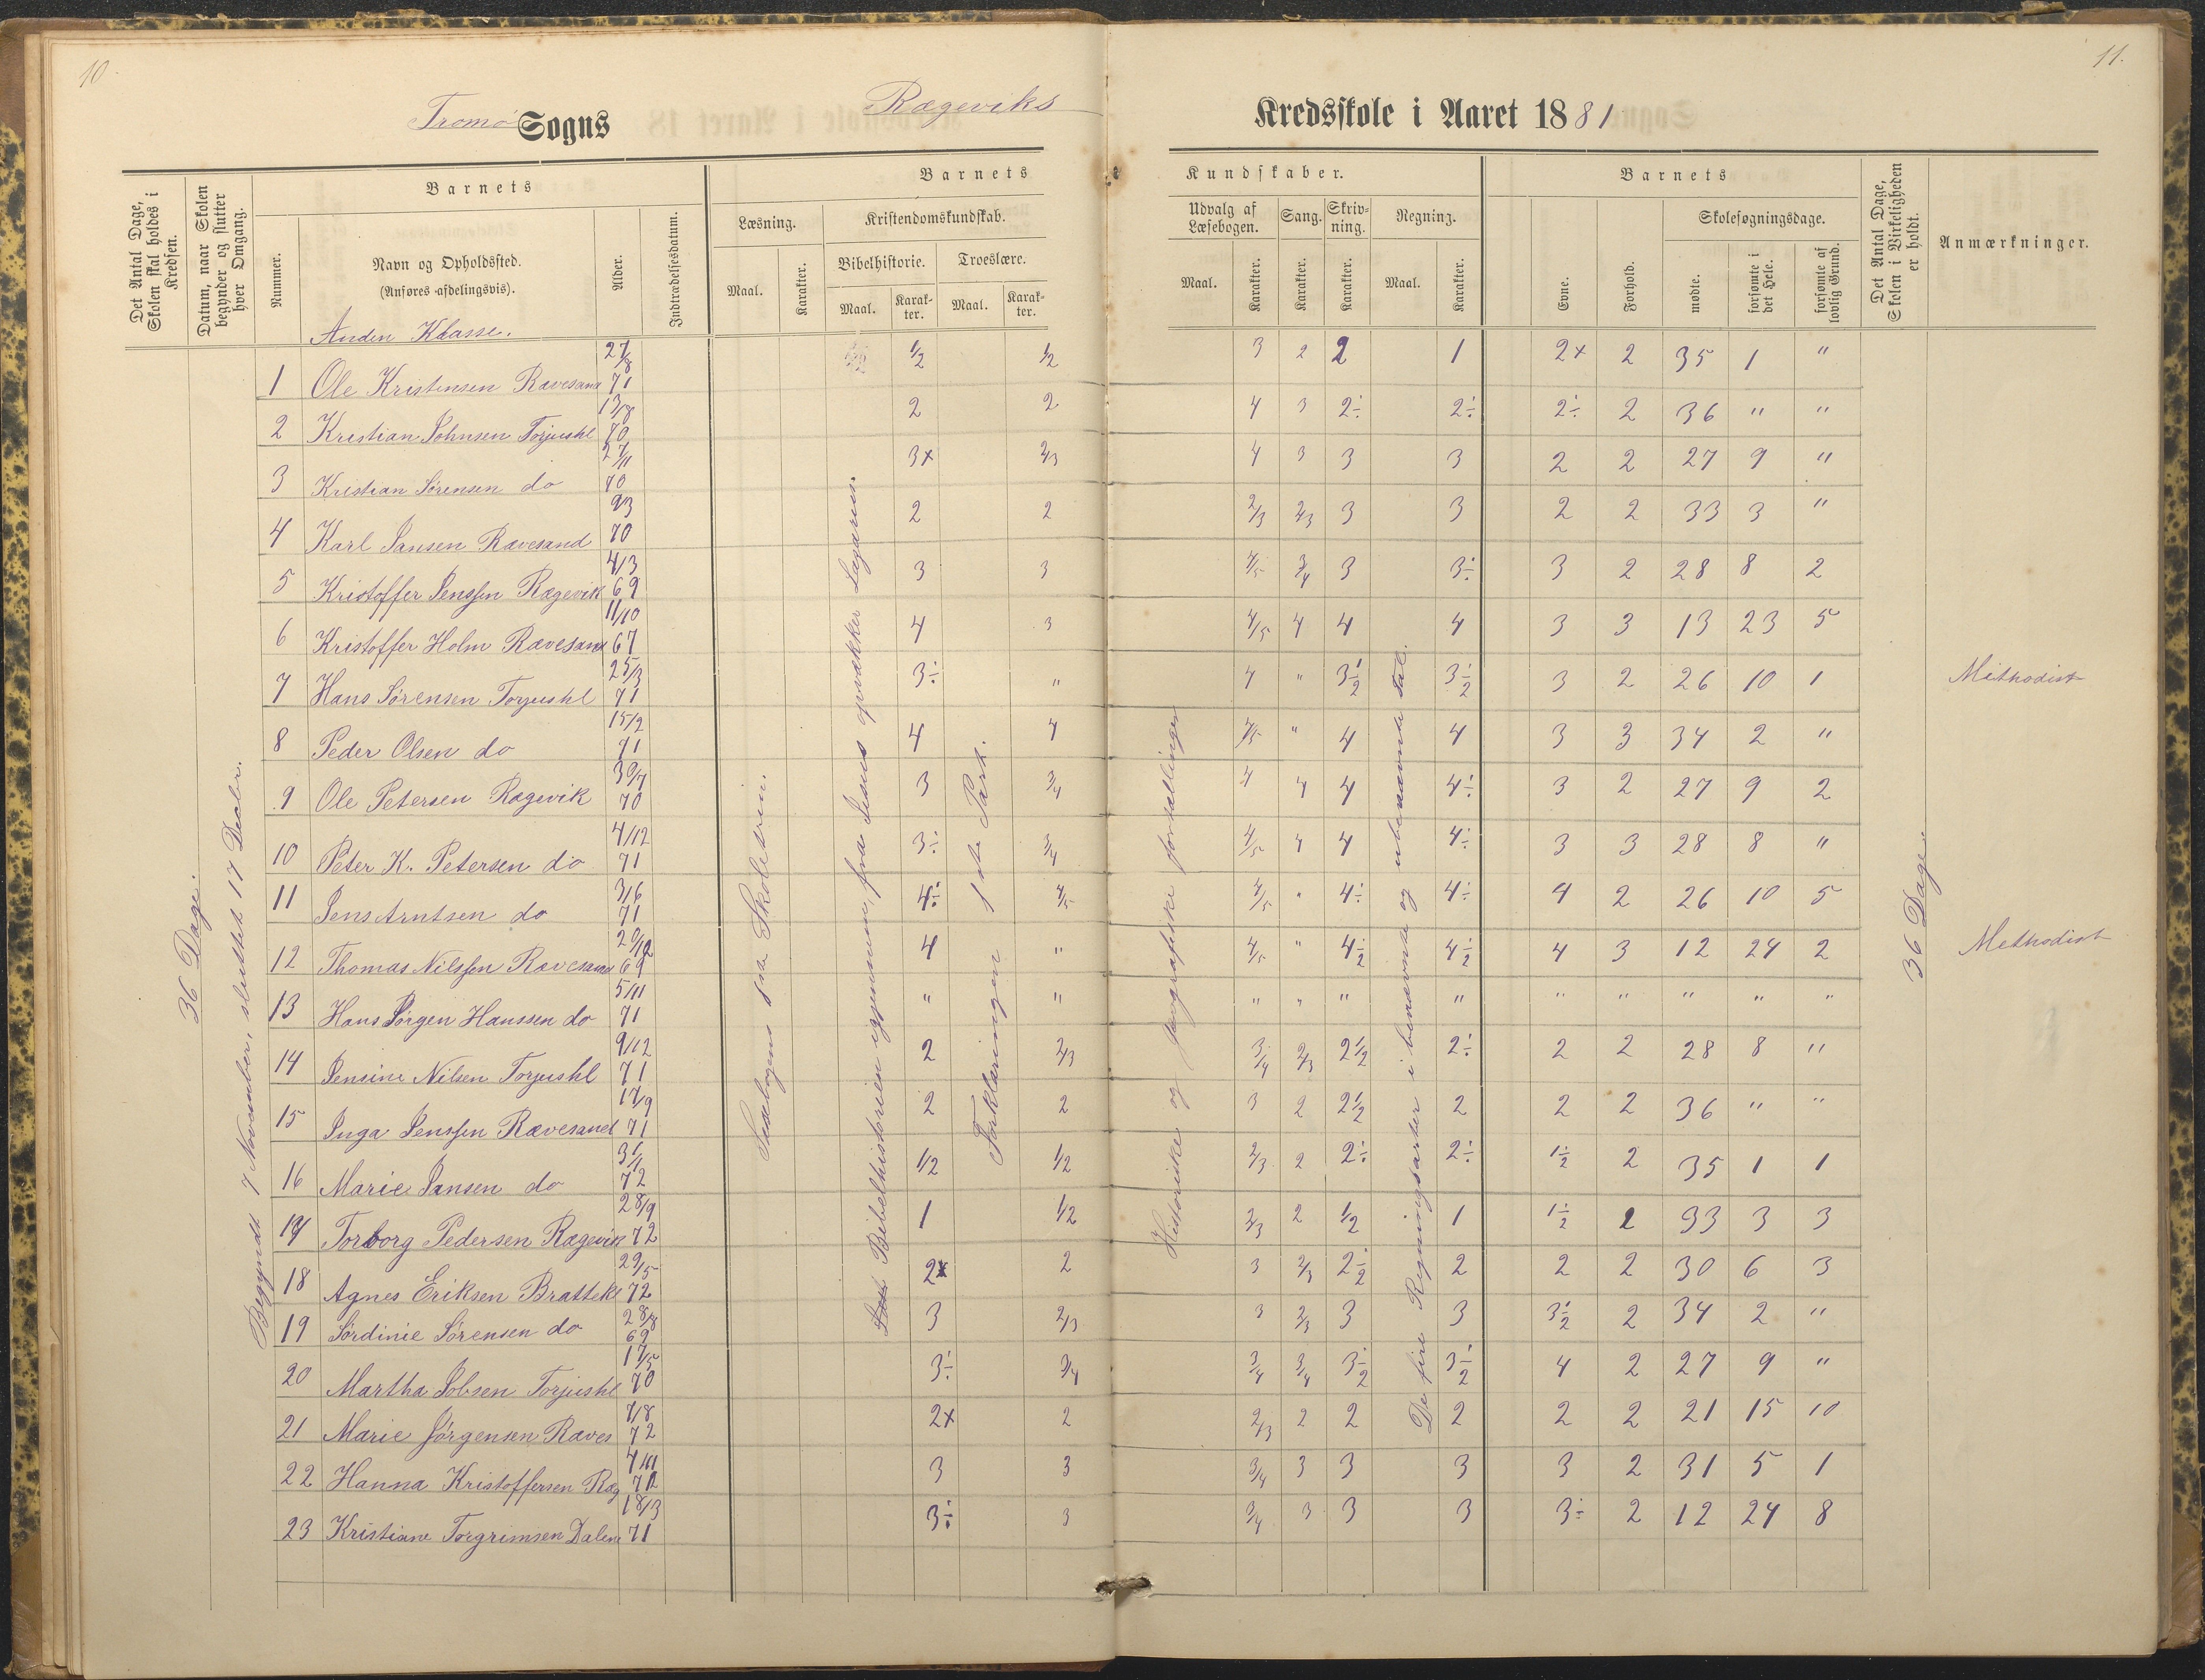 10.
11.
Tromø Sogns
Rægeviks
Kredsskole i Aaret 1881
Det Antal Dage, Skolen skal holdes i Kredsen.
Datum, naar Skolen begynder og slutter hver Omgang.
Barnets
Nummer.
Navn og Opholdssted.
(Anføres afdelingsvis).
Alder.
Indtrædelsesdatum.
Barnets
Læsning.
Maal.
Karakter.
Kristendomskundskab.
Bibelhistorie.
Maal.
Karakter.
Troeslære.
Maal.
Karakter.
Kundskaber.
Udvalg af Læsebogen.
Maal.
Karakter.
Sang.
Karakter.
Skrivning.
Karakter.
Regning.
Maal.
Karakter.
Barnets
Evne.
Forhold.
Skolesøgningsdage.
mødte.
forsømte i det Hele.
forsømte af lovlig Grund.
Det Antal Dage, Skolen i Virkeligheden er holdt.
Anmærkninger.
Anden Klasse.
36 Dage.
Begyndt 7 November, sluttet 17 Decbr.
Læsebogens 1ste Skoletrin.
Bibelhistorien igjennem fra Jesus opvækker Lazarus.
Forklaringen 1ste Part.
Historiske og geografiske fortællinger
De fire Regningsarter i benævnte og ubenævnte Tal.
36 Dage.
1 Ole Kristensen Ravesand 27/8 71 1/2 1/2 3 2 2 1 2x 2 35 1 "
2 Kristian Johnsen Torjushl 13/8 70 2 2 4 3 2÷ 2÷ 2÷ 2 36 " "
3 Kristian Sørensen do 27/11 70 3x 2/3 4 3 3 3 2 2 27 9 "
4 Karl Jansen Ravesand 9/3 70 2 2 2/3 2/3 3 3 2 2 33 3 "
5 Kristoffer Jenssen Rægevik 4/3 69 3 3 4/5 3/4 3 3÷ 3 2 28 8 2
6 Kristoffer Holm Ravesand 11/10 67 4 3 4/5 4 4 4 3 3 13 23 5
7 Hans Sørensen Torjushl 25/3 71 3÷ " 4 " 3÷2 3÷2 3 2 26 10 1 Methodist
8 Peder Olsen do 15/2 71 4 4 4/5 " 4 4 3 3 34 2 "
9 Ole Petersen Rægevik 30/7 70 3 3/4 4 4 4 4÷ 3 2 27 9 2
10 Peter K. Petersen do 4/12 71 3÷ 3/4 4/5 4 4 4÷ 3 3 28 8 "
11 Jens Arntsen do 3/6 71 4÷ 4/5 4/5 " 4÷ 4÷ 4 2 26 10 5
12 Thomas Nilssen Ravesand 20/12 69 4 " 4/5 " 4÷2 4÷2 4 3 12 24 2 Methodist
13 Hans Jørgen Hanssen do 5/11 71 " " " " " " " " " " "
14 Jensine Nilsen Torjushl 9/12 71 2 2/3 3/4 2/3 2 1/2 2÷ 2 2 28 8 "
15 Inga Jenssen Ravesand 17/9 71 2 2 3 2 2 1/2 2 2 2 36 " "
16 Marie Jansen do 31/1 72 1/2 1/2 2/3 2 2÷ 2÷ 1÷2 2 35 1 1
17 Torborg Pedersen Rægevik 28/9 72 1 1/2 2/3 2 1/2 1 1÷2 2 33 3 3
18 Agnes Eriksen Brattekl 29/5 72 2x 2 3 2/3 2÷2 2 2 2 30 6 3
19 Sørdinie Sørensen do 28/8 69 3 2/3 3 2/3 3 3 3÷2 2 34 2 "
20 Martha Jobsen Torjushl 17/5 70 3÷ 3/4 3/4 3/4 3÷2 3÷2 4 2 27 9 "
21 Marie Jørgensen Raves 7/8 72 2x 2 2/3 2 2 2 2 2 21 15 10
22 Hanna Kristoffersen Ræg 4/11 72 3 3 3/4 3 3 3 3 2 31 5 1
23 Kristiane Torgrimsen Dalene 18/3 71 3÷ 3 3/4 3 3 3 3÷ 2 12 24 8